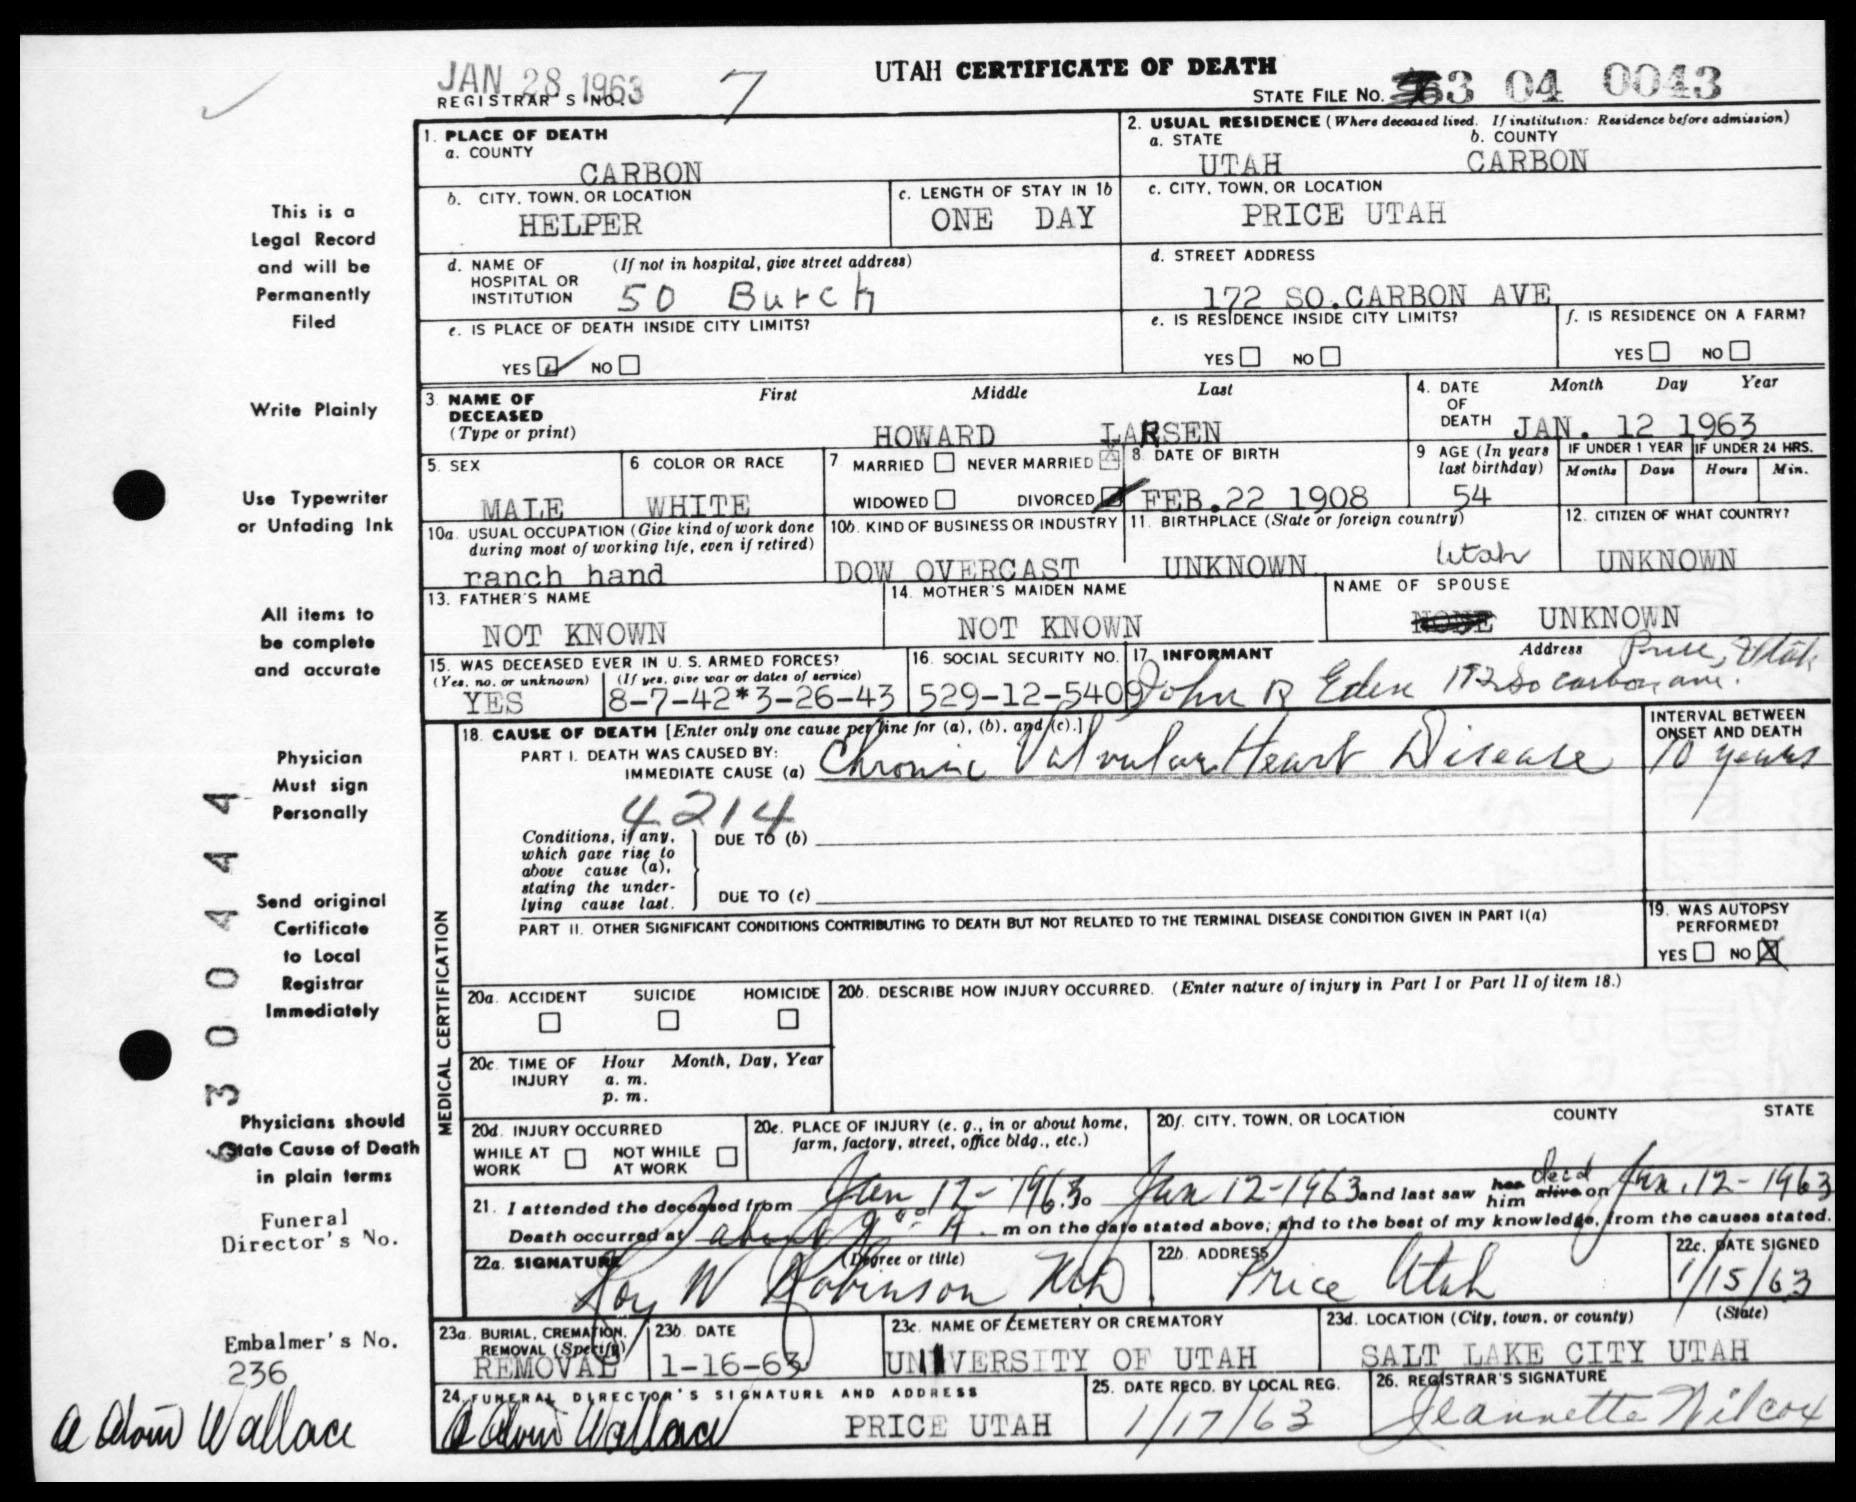 JAN 28 1963
REGISTRAR'S NO. 7
UTAH CERTIFICATE OF DEATH
STATE FILE NO. 63 04 0043
This is a
Legal Record
and will be
Permanently
Filed
Write Plainly
Use Typewriter
or Unfading Ink
All items to
be complete
and accurate
Physician
Must sign
Personally
Send original
Certificate
to Local
Registrar
Immediately
Physicians should
State Cause of Death
in plain terms
Funeral
Director's No.
Embalmer's No.
236
Wallace
6300444
1. PLACE OF DEATH
a. COUNTY
CARBON
2. USUAL RESIDENCE (Where deceased lived. If institution: Residence before admission)
a. STATE b. COUNTY
UTAH CARBON
b. CITY, TOWN, OR LOCATION
HELPER
c. LENGTH OF STAY IN 1b
ONE DAY
c. CITY, TOWN, OR LOCATION
PRICE UTAH
d. NAME OF (If not in hospital, give street address)
HOSPITAL OR
INSTITUTION 50 Burch
d. STREET ADDRESS
172 SO.CARBON AVE
e. IS PLACE OF DEATH INSIDE CITY LIMITS?
YES NO
e. IS RESIDENCE INSIDE CITY LIMITS?
YES NO
f. IS RESIDENCE ON A FARM?
YES NO
3. NAME OF First Middle Last
DECEASED
(Type or print) HOWARD LARSEN
4. DATE Month Day Year
OF
DEATH JAN. 12 1963
5. SEX
MALE
6 COLOR OR RACE
WHITE
7 MARRIED NEVER MARRIED X
WIDOWED DIVORCED
8. DATE OF BIRTH
FEB.22 1908
9 AGE (In years
last birthday)
54
IF UNDER 1 YEAR IF UNDER 24 HRS.
Months Days Hours Min.
10a. USUAL OCCUPATION (Give kind of work done
during most of working life, even if retired)
ranch hand
10b. KIND OF BUSINESS OR INDUSTRY
DOW OVERCAST
11. BIRTHPLACE (State or foreign country)
UNKNOWN Utah
12. CITIZEN OF WHAT COUNTRY?
UNKNOWN
13. FATHER'S NAME
NOT KNOWN
14. MOTHER'S MAIDEN NAME
NOT KNOWN
NAME OF SPOUSE
NONE UNKNOWN
15. WAS DECEASED EVER IN U. S. ARMED FORCES?
(Yes, no, or unknown) (If yes, give war or dates of service)
YES 8-7-42*3-26-43
16. SOCIAL SECURITY NO.
529-12-5409
17. INFORMANT Address
John R Eden 172 So carbon ave. Price, Utah
MEDICAL CERTIFICATION
18. CAUSE OF DEATH [Enter only one cause per line for (a), (b), and (c).]
PART I. DEATH WAS CAUSED BY:
IMMEDIATE CAUSE (a) Chronic Valvular Heart Disease
INTERVAL BETWEEN
ONSET AND DEATH
10 years
4214
Conditions, if any,
which gave rise to
above cause (a),
stating the under-
lying cause last.
DUE TO (b)
DUE TO (c)
PART II. OTHER SIGNIFICANT CONDITIONS CONTRIBUTING TO DEATH BUT NOT RELATED TO THE TERMINAL DISEASE CONDITION GIVEN IN PART I(a)
19. WAS AUTOPSY
PERFORMED?
YES NO X
20a. ACCIDENT SUICIDE HOMICIDE
20b. DESCRIBE HOW INJURY OCCURRED. (Enter nature of injury in Part I or Part II of item 18.)
20c. TIME OF Hour Month, Day, Year
INJURY a. m.
p. m.
20d. INJURY OCCURRED
WHILE AT WORK NOT WHILE AT WORK
20e. PLACE OF INJURY (e. g., in or about home,
farm, factory, street, office bldg., etc.)
20f. CITY, TOWN, OR LOCATION COUNTY STATE
21. I attended the deceased from Jan 12-1963 to Jan 12-1963 and last saw her him alive decd on Jan. 12-1963
Death occurred at about 9:00 A m on the date stated above; and to the best of my knowledge, from the causes stated.
22a. SIGNATURE (Degree or title)
Roy W Robinson MD
22b. ADDRESS
Price Utah
22c. DATE SIGNED
1/15/63
23a. BURIAL, CREMATION,
REMOVAL (Specify)
REMOVAL
23b. DATE
1-16-63
23c. NAME OF CEMETERY OR CREMATORY
UNIVERSITY OF UTAH
23d. LOCATION (City, town, or county) (State)
SALT LAKE CITY UTAH
24. FUNERAL DIRECTOR'S SIGNATURE AND ADDRESS
Wallace PRICE UTAH
25. DATE RECD. BY LOCAL REG.
1/17/63
26. REGISTRAR'S SIGNATURE
Jeannette Wilcox